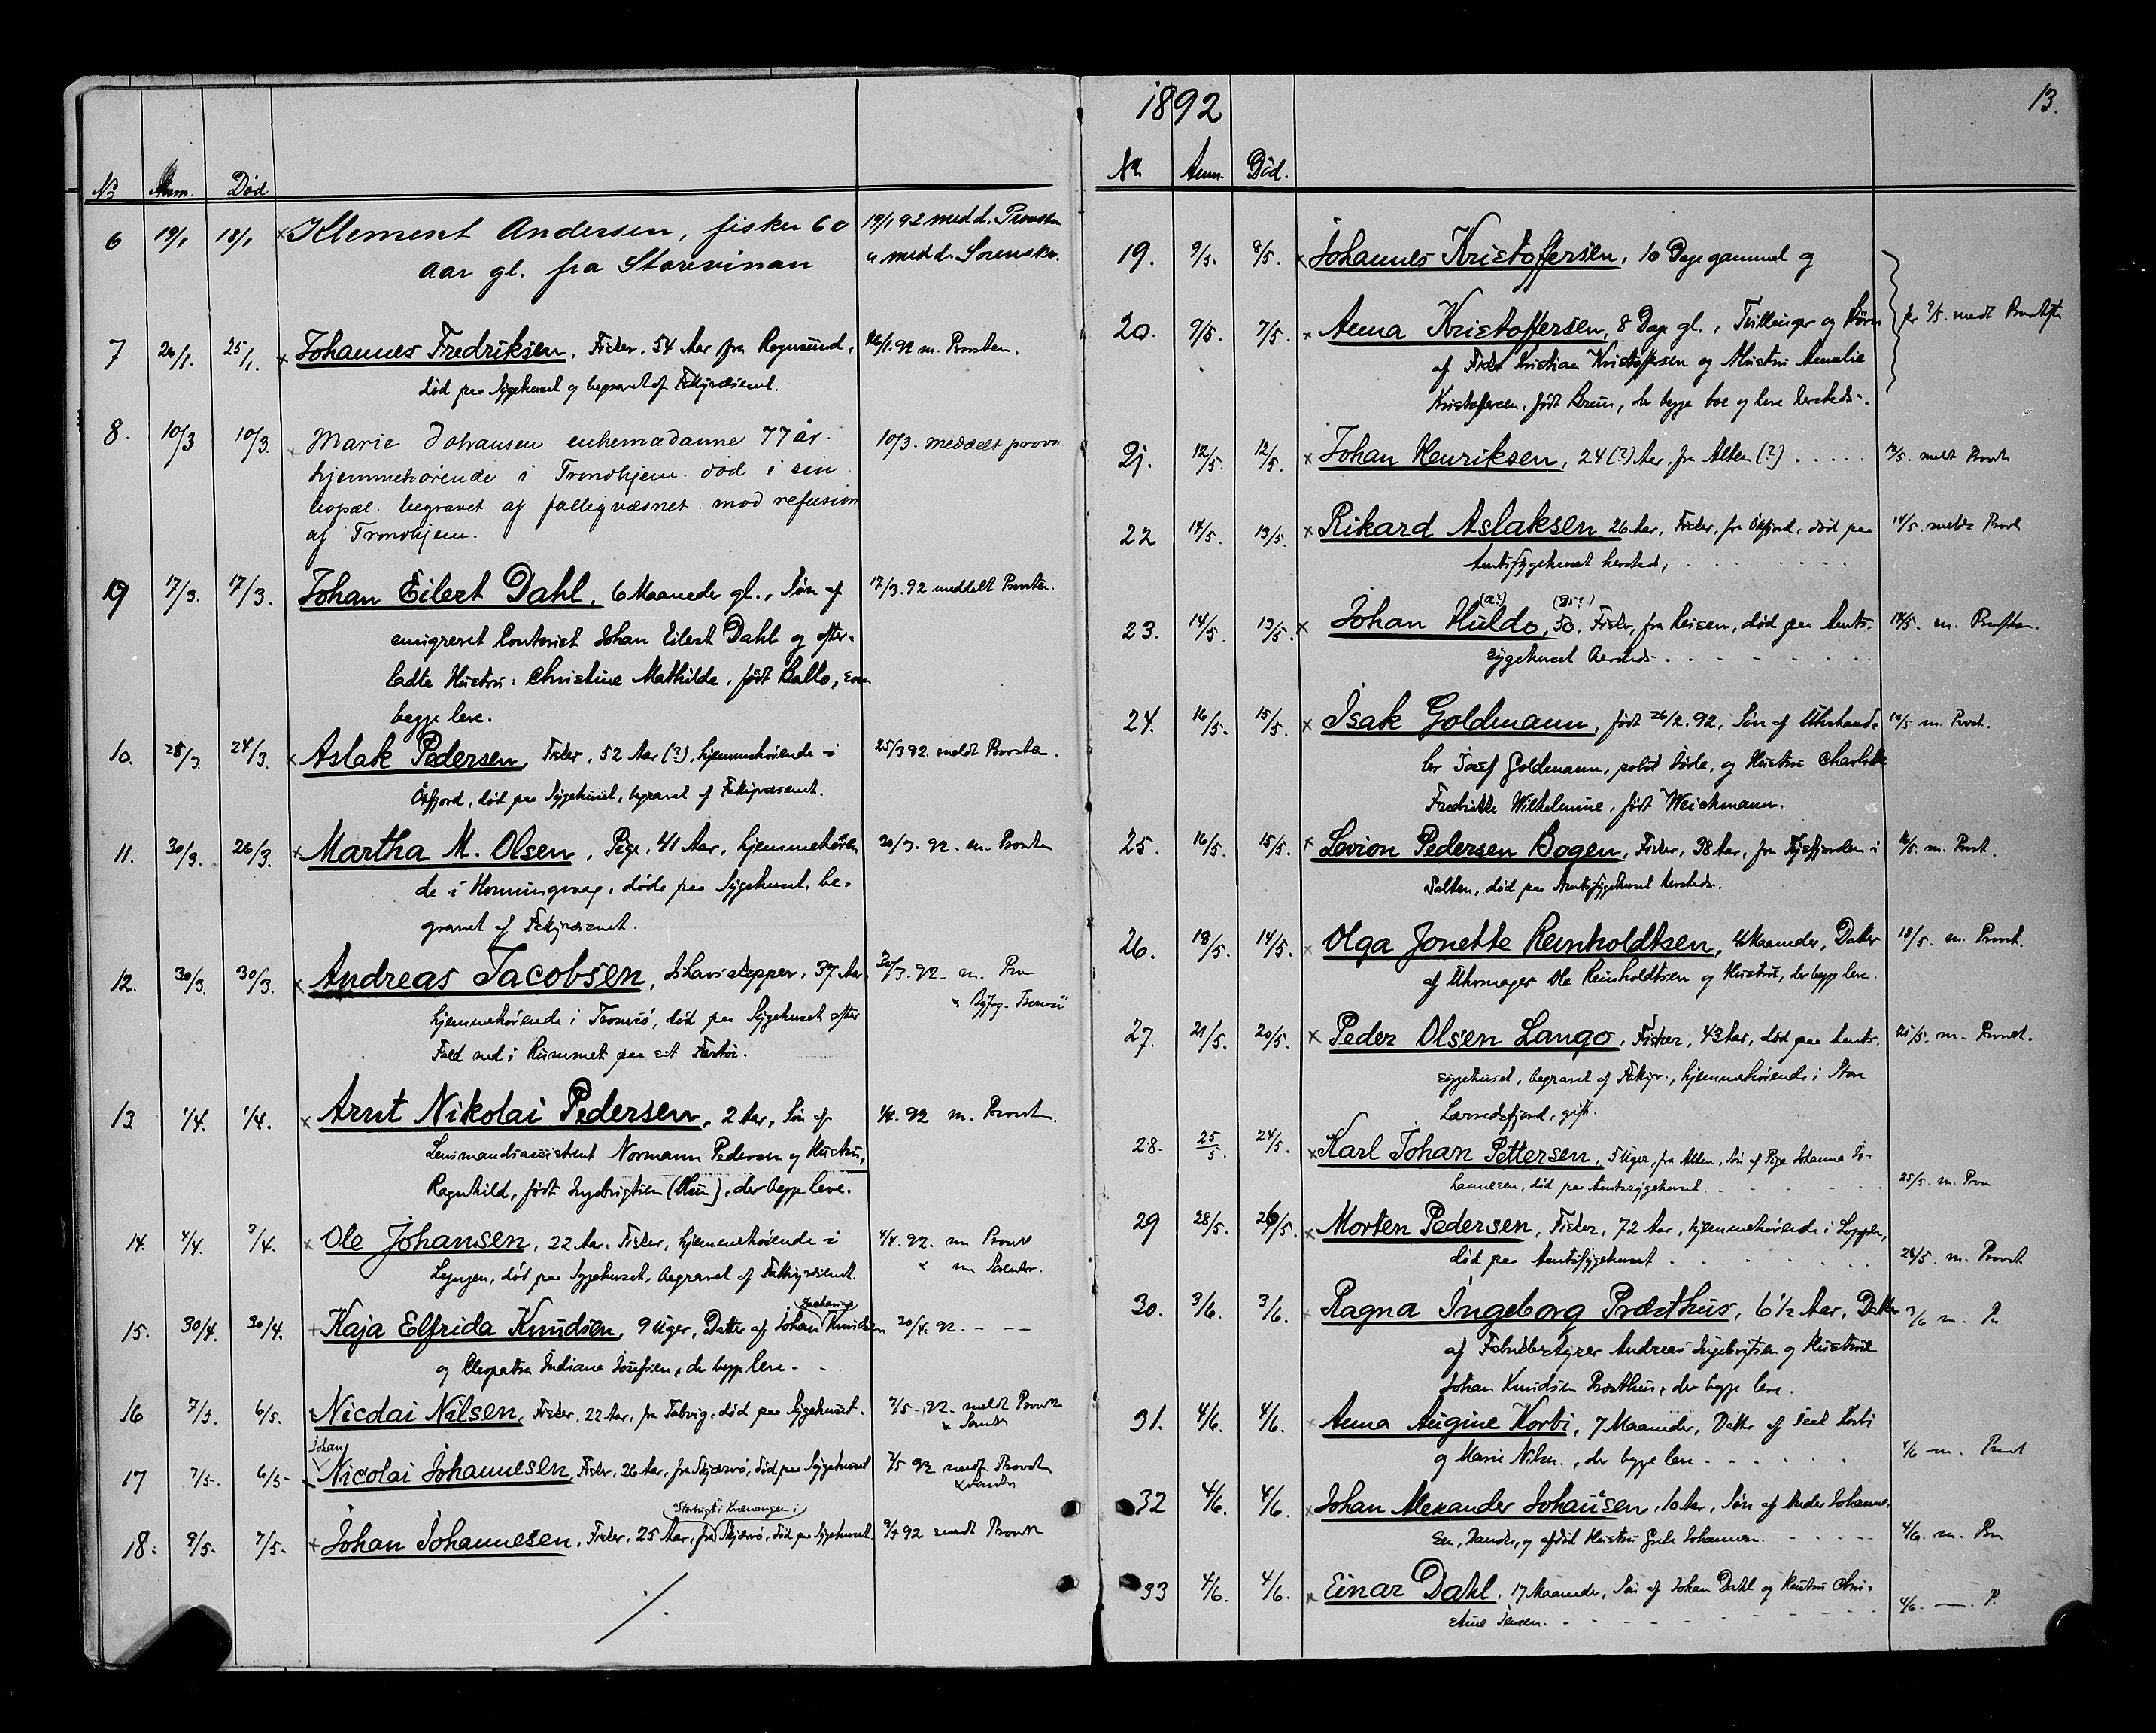 No Anm. Død
6 19/1 18/1 × Klement Andersen, fisker 60 19/1 92 medd. Provsten
aar gl. fra Storevinan a medd. Sorenskr.
7 26/1. 25/1. × Johannes Fredriksen, Fisker, 54 Aar fra Rognsund, 26/1.92 m. Provsten.
død paa Sygehuset og begravet af Fattigvæsenet.
8. 10/3 10/3. × Marie Johansen enkemadamme 77 år. 10/3. meddelt provst
hjemmehørende i Trondhjem. død i sin
bopæl. begravet af fattigvæsnet. mod refusion
af Trondhjem.
9 17/3. 17/3. Johan Eilert Dahl, 6 Maaneder gl., Søn af 17/3.92 meddelt Provsten.
emigreret Contorist Johan Eilert Dahl og efter-
ladte Hustru: Christine Mathilde, født Ballo, som
begge leve.
10. 25/3 24/3. × Aslak Pedersen, Fisker, 52 Aar (?), hjemmehørende i 25/3 92. meldt Provsten.
Øxfjord, død paa Sygehuset, begravet af Fattigvæsenet.
11. 30/3. 26/3. × Martha M. Olsen, Pige, 41 Aar, hjemmehøren 30/3. 92. m. Provsten
de i Honningsvaag, døde paa Sygehuset, be-
gravet af Fattigvæsenet.
12. 30/3. 30/3. × Andreas Jacobsen, Ishavsskipper, 37 Aar 30/3. 92. m. Prov
hjemmehørende i Tromsø, død paa Sygehuset efter × Byfog. Tromsø
Fald ned i Rummet paa sit Fartøi.
13 1/4. 1/4. × Arnt Nikolai Pedersen, 2 Aar, Søn af 1/4. 92 m. Provst.
Lensmandsassistent Normann Pedersen og Hustru,
Ragnhild, født Ingebrigtsen (Olsen), der begge leve.
14. 4/4. 3/4. × Ole Johansen, 22 Aar, Fisker, hjemmehørende i 4/4. 92. m Provst
Lyngen, død paa Sygehuset, begravet af Fattigvæsenet. × m Sorenskr.
Zacharias
15. 30/4. 30/4. + Kaja Elfrida Knudsen, 9 Uger, Datter af Johan Knudsen 30/4. 92. – –
og Cleopatra Indiana Josefsen, der begge leve.
16 7/5. 6/5. × Nicolai Nilsen, Fisker, 22 Aar, fra Talvig, død paa Sygehuset. 7/5 - 92 - meldt Provst
Johan
17 7/5. 6/5 - × Nicolai Johannesen, Fisker, 26 Aar, fra Skjærvø, død paa Sygehuset 7/5 92 meldt Provst
"Storbugt" i Kvænangen i
18. 9/5. 7/5. × Johan Johannesen, Fisker, 25 Aar, fra Skjærvø, død paa Sygehuset. 9/5 92 meldt Provst
1892 13.
No Anm. Død.
19. 9/5. 8/5. × Johannes Kristoffersen, 10 Dage gammel og
20. 9/5. 7/5. × Anna Kristoffersen, 8 Dage gl., Tvillinger og Børn pr 9/5. medt Provsten
af Fisker Kristian Kristoffersen og Hustru Amalie
Kristoffersen, født Bruun, der begge boe og leve hersteds.
21. 12/5. 12/5. × Johan Henriksen, 24 (?) Aar, fra Alten (?) ..... 12/5. meldt Provst
22 14/5. 13/5. × Rikard Aslaksen, 26 Aar, Fisker, fra Øxfjord, død paa 14/5. meldt Provst
Amtssygehuset hersted, .......
(a?) (51?)
23. 14/5. 13/5. × Johan Huldo, 50, Fisker, fra Reisen, død paa Amts- 14/5. m. Provsten.
sygehuset hersteds. .......
24. 16/5. 15/5. × Isak Goldmann, født 26/2. 92, Søn af Uhrhand- 16/5. m. Provst.
ler Josef Goldmann, polsk Jøde, og Hustru Charlotte
Fredrikke Wilhelmine, født Weichmann.
25. 16/5. 15/5. × Levion Pedersen Bogen, Fisker, 38 Aar, fra Tysfjorden i 16/5. m. Provst.
Salten, død paa Amtssygehuset hersteds.
26. 18/5. 14/5. × Olga Jonette Reinholdtsen, 4 Maaneder, Datter 18/5. m. Provst.
af Uhrmager Ole Reinholdtsen og Hustru, der begge leve.
27. 21/5. 20/5. × Peder Olsen Lango, Fisker, 43 Aar, død paa Amts- 21/5. m. Provst.
sygehuset, begravet af Fattigv., hjemmehørende i Store
Lærredsfjord, gift.
28. 25/5. 24/5. × Karl Johan Pettersen, 5 Uger, fra Alten, Søn af Pige Johanna Jo-
hannesen, død paa Amtssygehuset. 25/5. m. Prov
29 28/5. 26/5. × Morten Pedersen, Fisker, 72 Aar, hjemmehørende i Loppen,
død paa Amtssygehuset ....... 28/5. m. Provst
30. 3/6. 3/6. × Ragna Ingeborg Præsthus, 6 1/2 Aar, Datter 3/6 m. Pr
af Fabrikbestyrer Andreas Ingebrigtsen og Hustrue
Johan Knudsen Præsthus, der begge leve.
31. 4/6. 4/6. × Anna Augine Korbi, 7 Maaneder, Datter af Isak Korbi
og Marie Nilsen, der begge leve ...... 4/6 m. Provst
32 4/6. 4/6. × Johan Alexander Johansen, 10 Aar, Søn af Anders Johanne-
sen, og afdød Hustru Grete Johannesen. 4/6. m. Prov
33 4/6. 4/6. × Einar Dahl, 17 Maaneder, Søn af Johan Dahl og Hustru Chri-
stine Jensen. ....... 4/6. — . P.